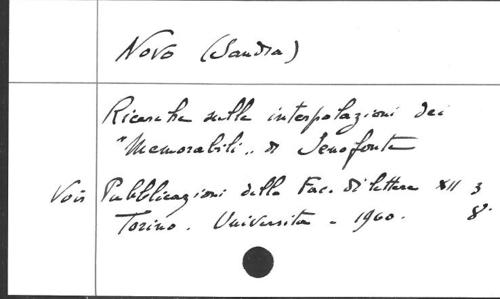 Novo (Sandra)
Ricerche sulle interpolazioni dei
"Memorabili" di Senofonte
Voir Pubblicazioni della Fac. di lettere XII 3
Torino. Universita - 1960. 8°.